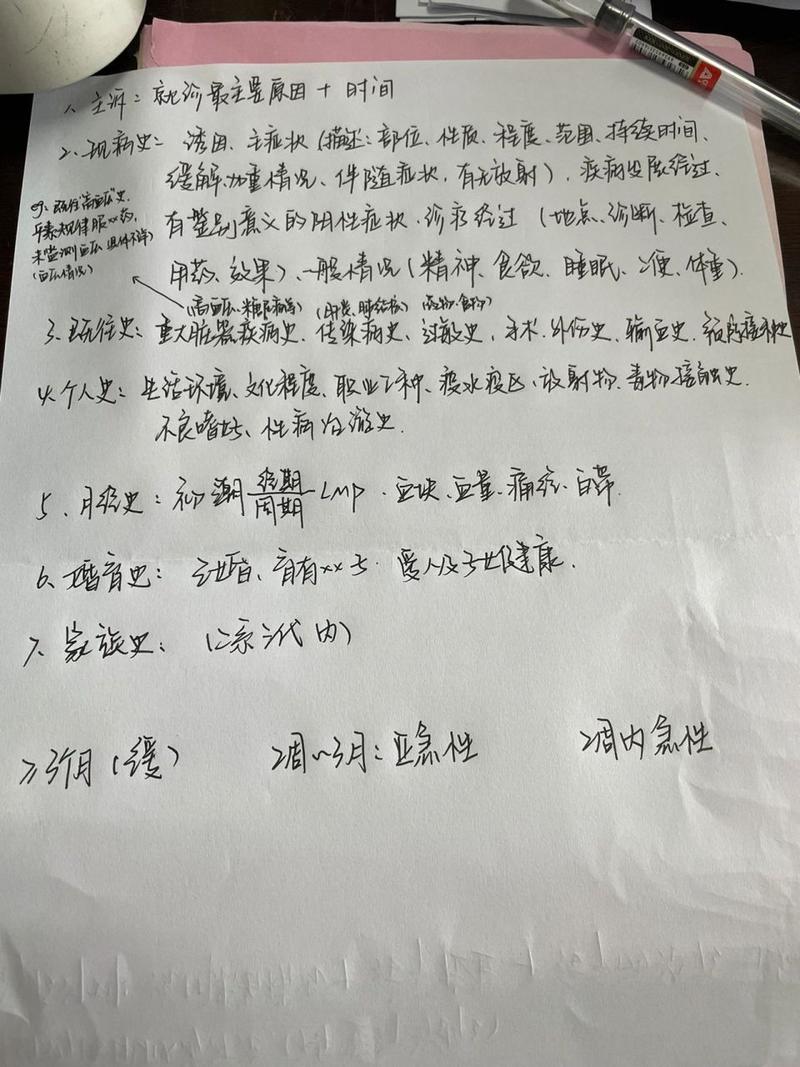 1、主诉：就诊最主要原因 + 时间
2、现病史：诱因、主症状（描述：部位、性质、程度、范围、持续时间、
缓解、加重情况、伴随症状、有无放射）、疾病发展经过、
有鉴别意义的阴性症状、诊疗经过（地点、诊断、检查、
用药、效果）、一般情况（精神、食欲、睡眠、二便、体重）.
既往"高血压"史，
平素规律服xx药，
未监测血压 具体不详
（血压情况）
（高血压、糖尿病等）（肝炎、肺结核）（药物、食物）
3、既往史：重大脏器疾病史、传染病史、过敏史、手术、外伤史、输血史、预防接种史
4、个人史：生活环境、文化程度、职业工种、疫水疫区、放射物、毒物接触史、
不良嗜好、性病冶游史.
5、月经史：初潮 经期/周期 LMP、血块、血量、痛经、白带.
6、婚育史：已婚、育有xx子. 爱人及子女健康.
7、家族史：（二系三代内）
≥3个月（缓） 2周~3月：亚急性 2周内 急性